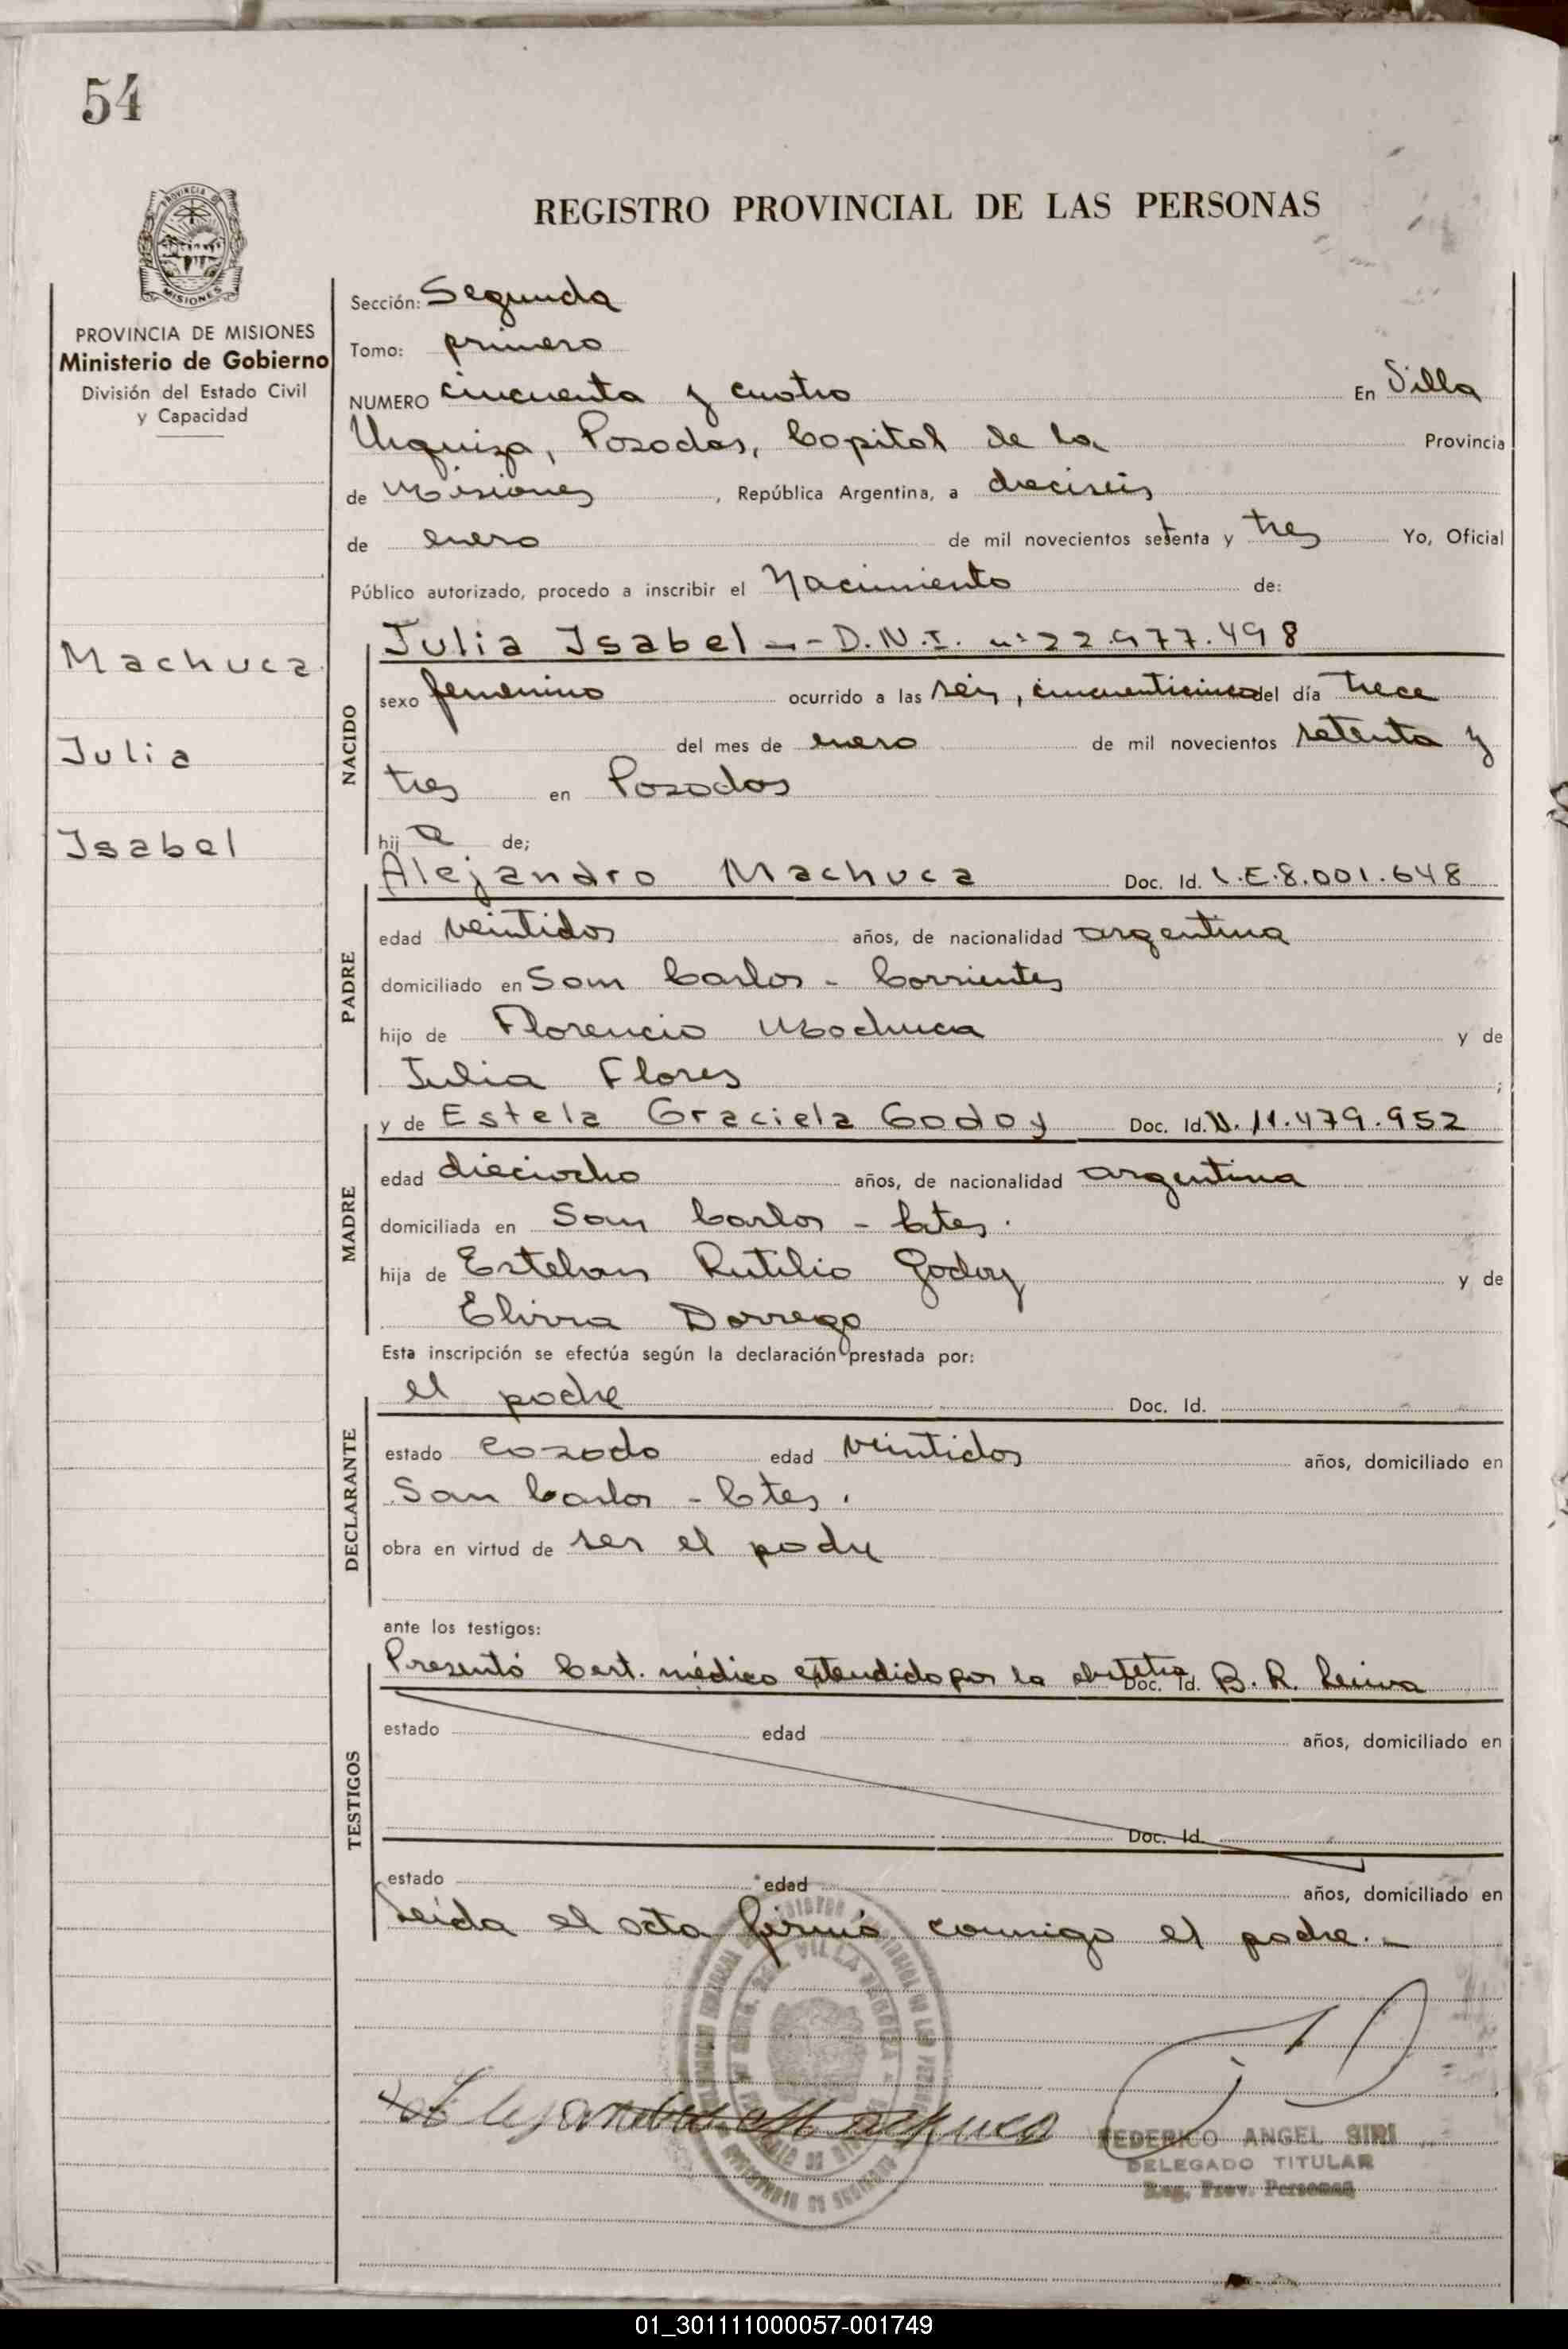 54
REGISTRO PROVINCIAL DE LAS PERSONAS
PROVINCIA DE MISIONES
Ministerio de Gobierno
División del Estado Civil
y Capacidad
Machuca
Julia
Isabel
Sección: Segunda
Tomo: primero
NUMERO cincuenta y cuatro En Villa
Urquiza, Posadas, Capital de la Provincia
de Misiones, República Argentina, a dieciseis
de enero de mil novecientos setenta y tres Yo, Oficial
Público autorizado, procedo a inscribir el Nacimiento de:
NACIDO
Julia Isabel -- D.N.I. nº 22.977.498
sexo femenino ocurrido a las seis, cincuenticinco del día trece
del mes de enero de mil novecientos setenta y
tres en Posadas
hija de;
PADRE
Alejandro Machuca Doc. Id. L.E.8.001.648
edad veintidos años, de nacionalidad argentina
domiciliado en San Carlos - Corrientes
hijo de Florencio Machuca y de
Julia Flores ;
MADRE
y de Estela Graciela Godoy Doc. Id. N. 11.479.952
edad dieciocho años, de nacionalidad argentina
domiciliada en San Carlos - Ctes.
hija de Esteban Rutilio Godoy y de
Elvira Dorrego
Esta inscripción se efectúa según la declaración prestada por:
DECLARANTE
el padre Doc. Id.
estado casado edad veintidos años, domiciliado en
San Carlos - Ctes.
obra en virtud de ser el padre
ante los testigos:
TESTIGOS
Presentó Cert. médico extendido por la obstetra Doc. Id. B. R. Leiva
estado edad años, domiciliado en
Doc. Id.
estado edad años, domiciliado en
Leída el acta firmó conmigo el padre.-
Alejandro Machuca
FEDERICO ANGEL SIRI
DELEGADO TITULAR
Reg. Prov. Personas
01_301111000057-001749